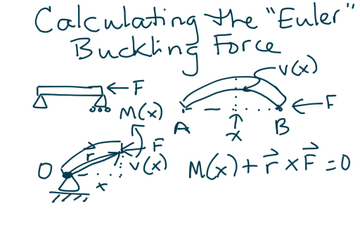 Calculating the "Euler"
Buckling Force
F
v(x)
M(x)
A
B
F
x
O
r
F
v(x)
x
M(x) + r x F = 0